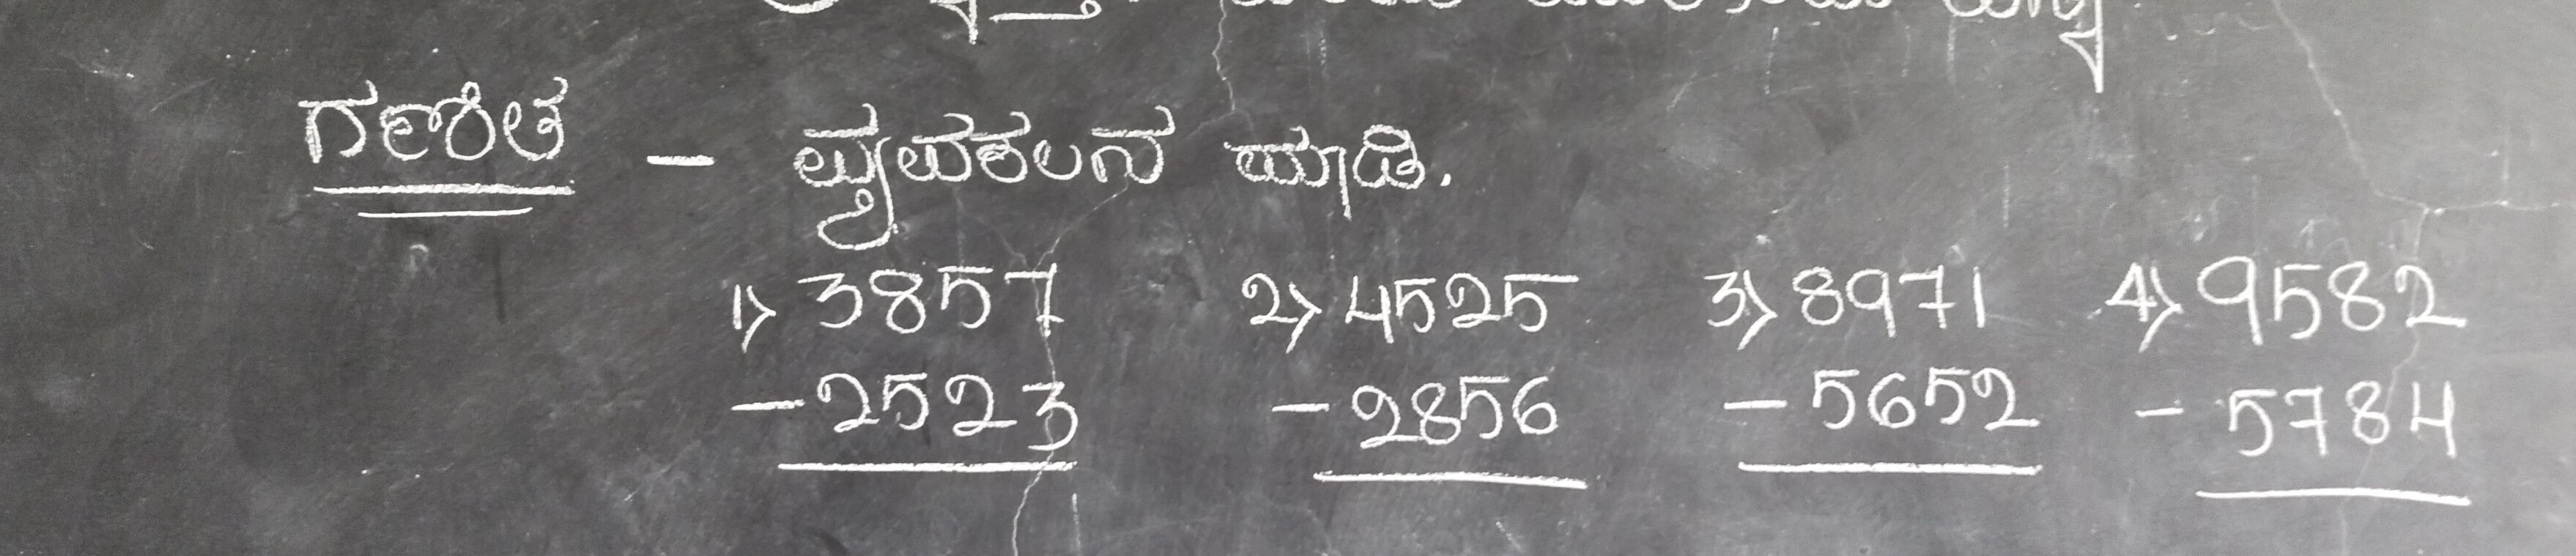 ಗಣಿತ - ವ್ಯವಕಲನ ಮಾಡಿ.
1) 3857 2) 4525 3) 8971 4) 9582
- 2523 - 2856 - 5652 - 5784